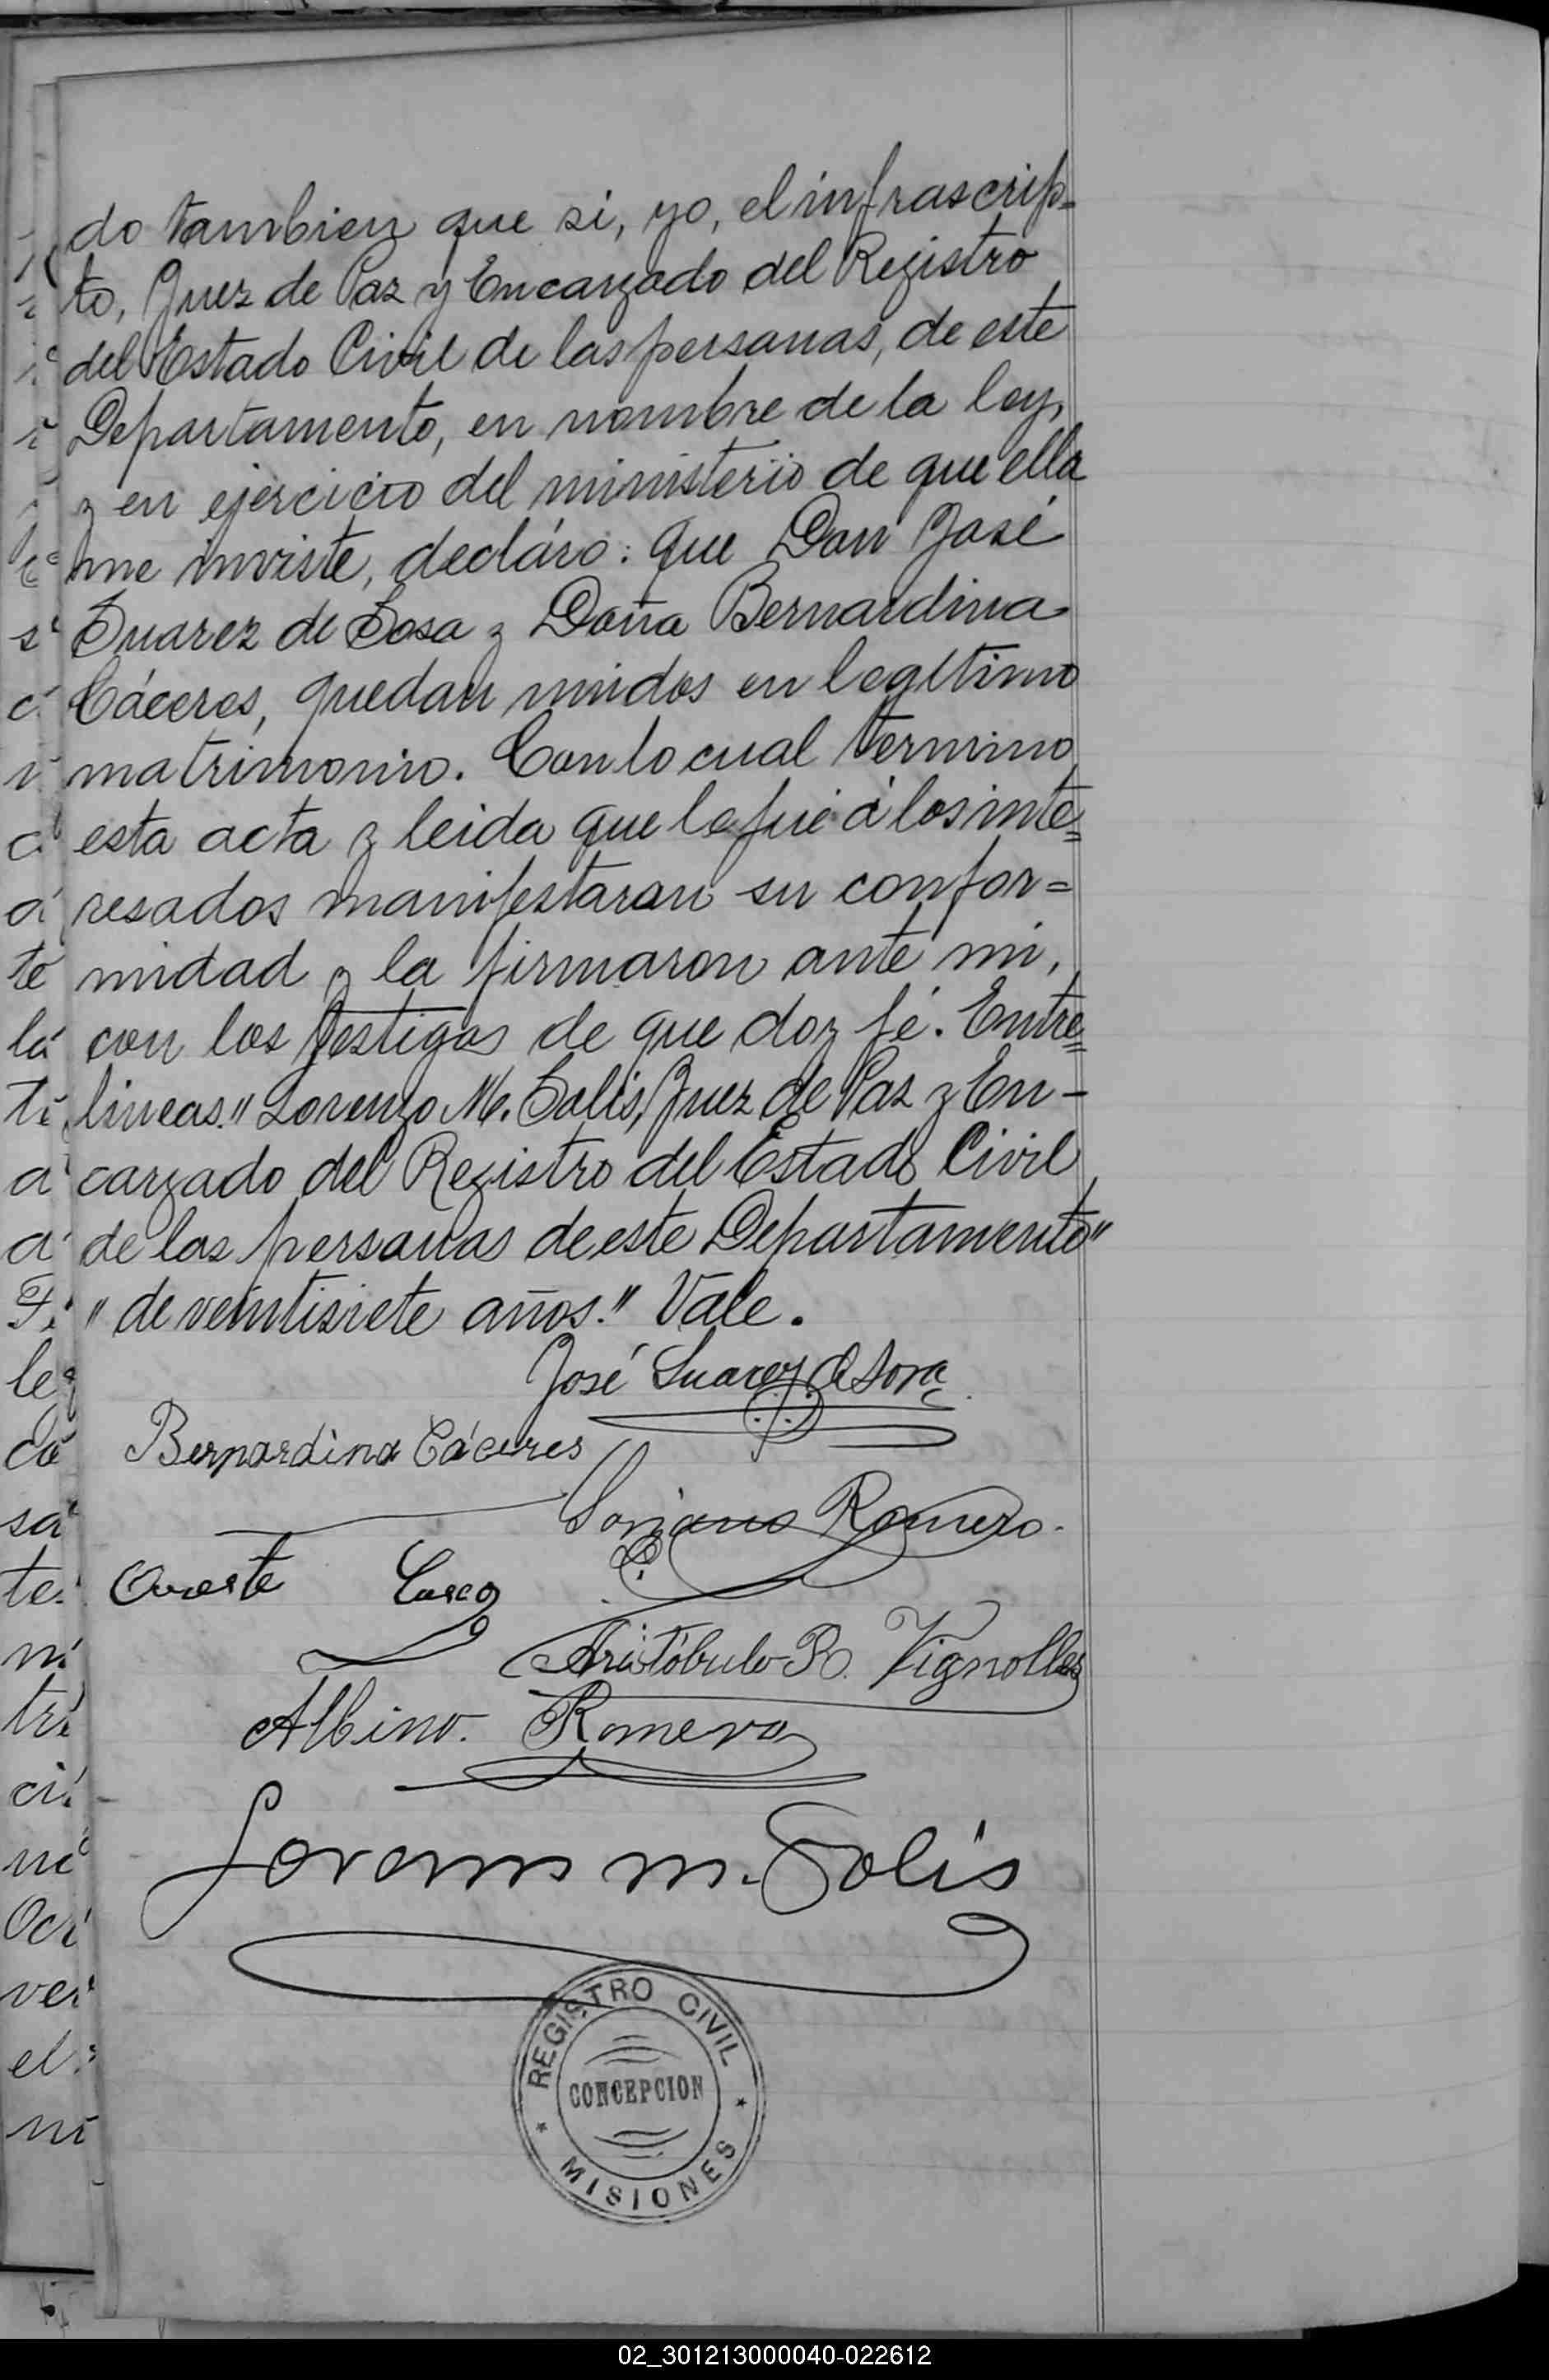 do tambien que si, yo, el infrascrip-
to, Juez de Paz y Encargado del Registro
del Estado Civil de las personas, de este
Departamento, en nombre de la ley,
y en ejercicio del ministerio de que ella
me inviste, decláro: que Don José
Suarez de Sosa y Doña Bernardina
Cáceres, quedan unidos en legitimo
matrimonio. Con lo cual termino
esta acta y leida que le fué á los inte=
resados manifestaron su confor=
midad y la firmaron ante mi,
con los testigos de que doy fé. Entre=
lineas." Lorenzo M. Solis, Juez de Paz y En-
cargado del Registro del Estado Civil
de las personas de este Departamento"
" de veintisiete años." Vale.
José Suarez de Sosa
Bernardina Cáceres
Soriano Romero.
Aristóbulo B. Vignolles
Albino. Romero
Lorenzo M. Solis
REGISTRO CIVIL
CONCEPCION
* MISIONES *
02_301213000040-022612